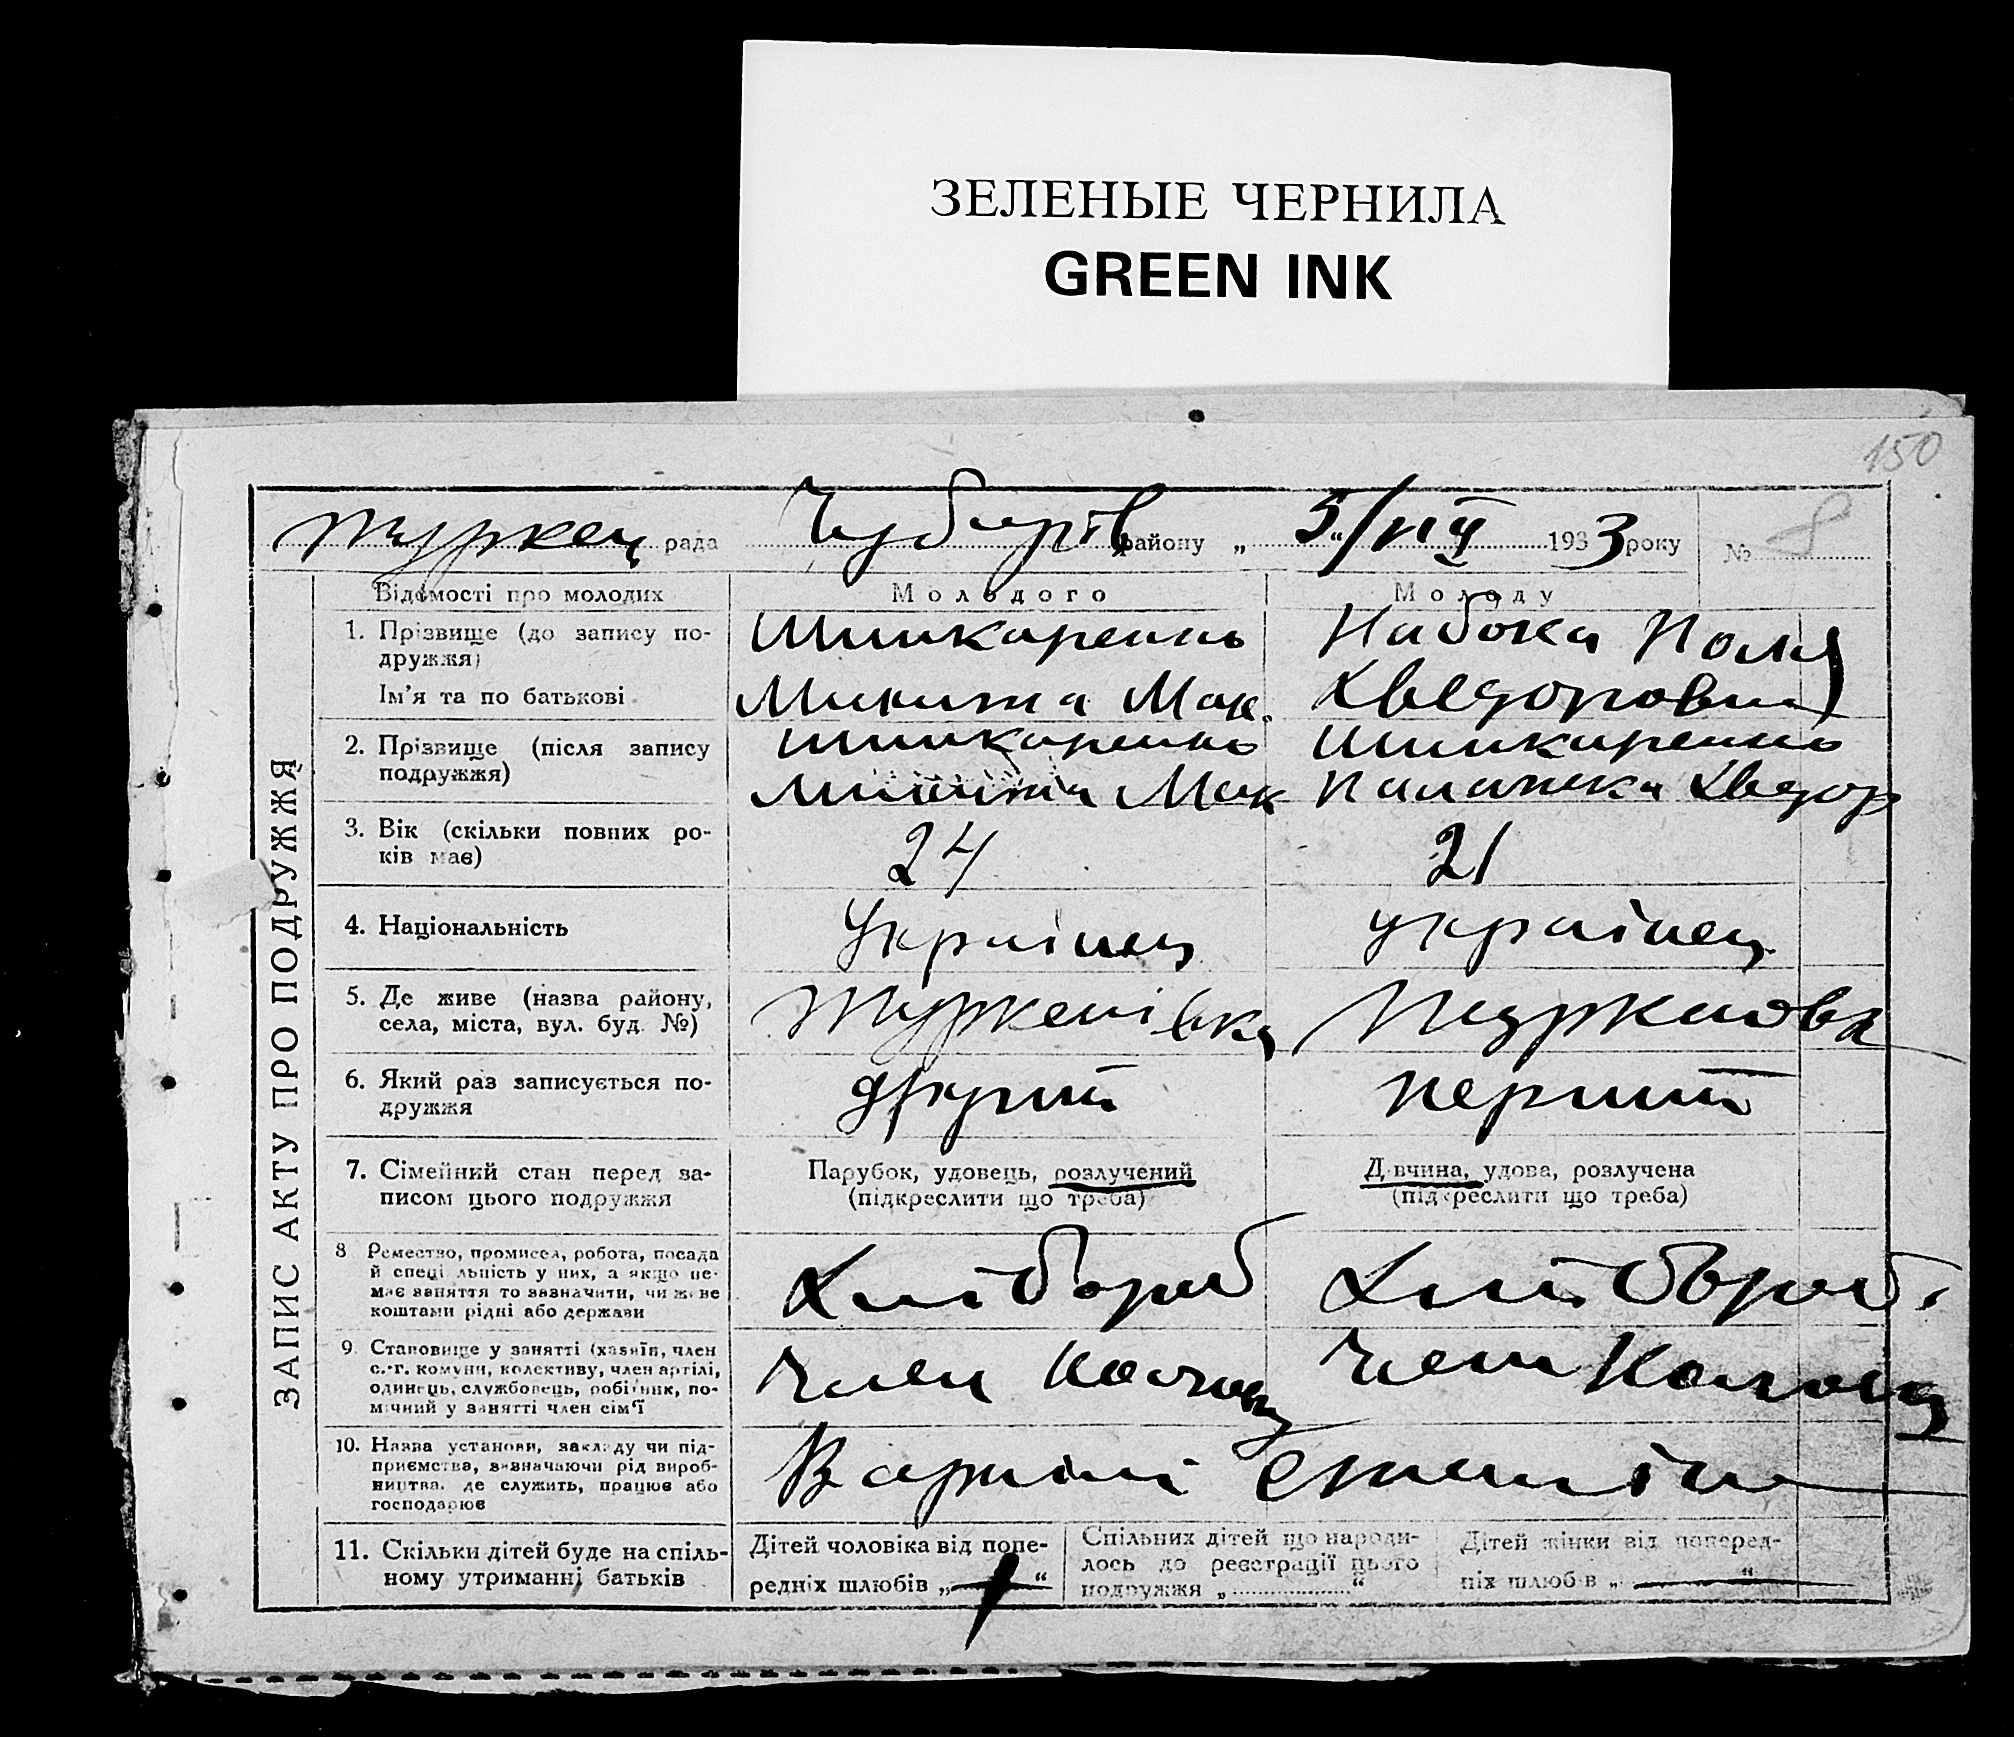 ЗЕЛЕНЫЕ ЧЕРНИЛА
GREEN INK
150
Туркен рада Чубарів району „ 5 “ /VII 1933 року № 8
ЗАПИС АКТУ ПРО ПОДРУЖЖЯ
Відомості про молодих Молодого Молоду
1. Прізвище (до запису по-
дружжя)
Шинкаренко Набока Поля
Ім'я та по батькові
Микита Мак. Хведоровна
2. Прізвище (після запису
подружжя)
Шинкаренко Шинкаренко
Микита Мак Палажка Хведор
3. Вік (скільки повних ро-
ків має)
24 21
4. Національність
Українец українец
5. Де живе (назва району,
села, міста, вул. буд. №)
Туркенівка Туркановка
6. Який раз записується по-
дружжя
другий перший
7. Сімейний стан перед за-
писом цього подружжя
Парубок, удовець, розлучений
(підкреслити що треба)
Дівчина, удова, розлучена
(підкреслити що треба)
8 Ремество, промисел, робота, посада
й спеціяльність у них, а якщо не-
має заняття то зазначити, чи живе
коштами рідні або держави
Хлібороб Хлібороб.
9 Становище у занятті (хазяїн, член
с.-г. комуни, колективу, член артілі,
одинець, службовець, робітник, по-
мічний у занятті член сім'ї
Член Колгоспу Член Колгоспу
10. Назва установи, закладу чи під-
приємства, визначаючи рід вироб-
ництва, де служить, працює або
господарює
Сталін
11. Скільки дітей буде на спіль-
ному утриманні батьків
Дітей чоловіка від попе-
редніх шлюбів „ “
Спільних дітей що народи-
лось до реєстрації цього
подружжя „ “
Дітей жінки від поперед-
ніх шлюбів „ “